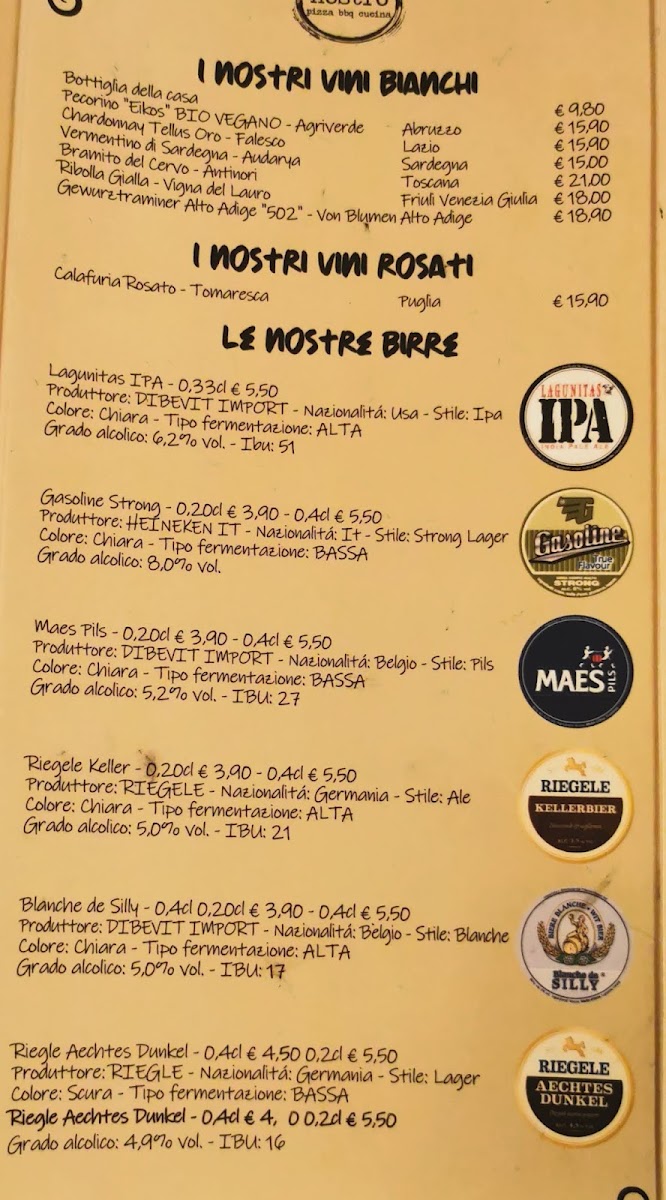 pizza bbq cucina
I NOSTRI VINI BIANCHI
Bottiglia della casa € 9,80
Pecorino "Eikos" BIO VEGANO - Agriverde Abruzzo € 15,90
Chardonnay Tellus Oro - Falesco Lazio € 15,90
Vermentino di Sardegna - Audarya Sardegna € 15,00
Bramito del Cervo - Antinori Toscana € 21,00
Ribolla Gialla - Vigna del Lauro Friuli Venezia Giulia € 18,00
Gewurztraminer Alto Adige "502" - Von Blumen Alto Adige € 18,90
I NOSTRI VINI ROSATI
Calafuria Rosato - Tomaresca Puglia € 15,90
LE NOSTRE BIRRE
Lagunitas IPA - 0,33cl € 5,50
Produttore: DIBEVIT IMPORT - Nazionalitá: Usa - Stile: Ipa
Colore: Chiara - Tipo fermentazione: ALTA
Grado alcolico: 6,2% vol. - Ibu: 51
LAGUNITAS
IPA
INDIA PALE ALE
Gasoline Strong - 0,20cl € 3,90 - 0,4cl € 5,50
Produttore: HEINEKEN IT - Nazionalitá: It - Stile: Strong Lager
Colore: Chiara - Tipo fermentazione: BASSA
Grado alcolico: 8,0% vol.
G
Gasoline
True
Flavour
STRONG
Maes Pils - 0,20cl € 3,90 - 0,4cl € 5,50
Produttore: DIBEVIT IMPORT - Nazionalitá: Belgio - Stile: Pils
Colore: Chiara - Tipo fermentazione: BASSA
Grado alcolico: 5,2% vol. - IBU: 27
MAES PILS
Riegele Keller - 0,20cl € 3,90 - 0,4cl € 5,50
Produttore: RIEGELE - Nazionalitá: Germania - Stile: Ale
Colore: Chiara - Tipo fermentazione: ALTA
Grado alcolico: 5,0% vol. - IBU: 21
RIEGELE
KELLERBIER
Blanche de Silly - 0,4cl 0,20cl € 3,90 - 0,4cl € 5,50
Produttore: DIBEVIT IMPORT - Nazionalitá: Belgio - Stile: Blanche
Colore: Chiara - Tipo fermentazione: ALTA
Grado alcolico: 5,0% vol. - IBU: 17
BIERE BLANCHE • WIT BIER
Blanche de
SILLY
Riegle Aechtes Dunkel - 0,4cl € 4,50 0,2cl € 5,50
Produttore: RIEGLE - Nazionalitá: Germania - Stile: Lager
Colore: Scura - Tipo fermentazione: BASSA
Riegle Aechtes Dunkel - 0,4cl € 4, 0 0,2cl € 5,50
Grado alcolico: 4,9% vol. - IBU: 16
RIEGELE
AECHTES
DUNKEL